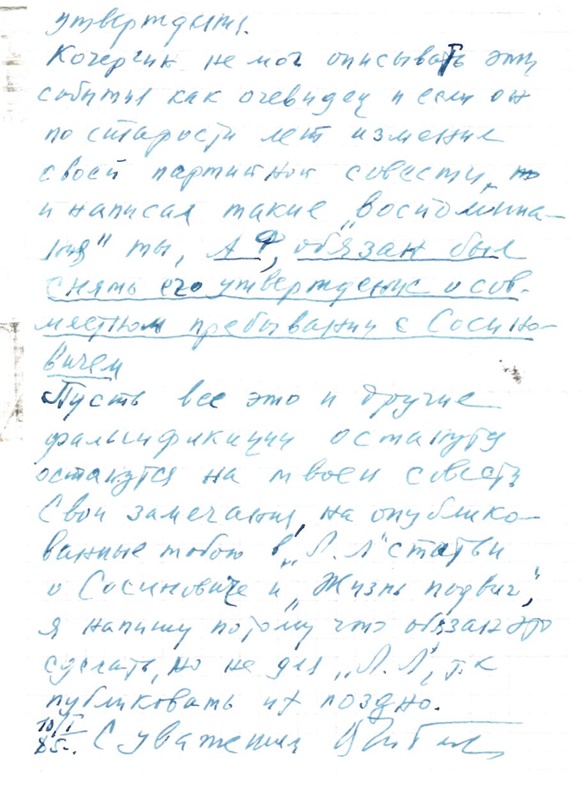 утверждать.
Кочергин не мог описывать эти
события как очевидец и если он
по старости лет изменил
своей партийной совести,
и написал такие „воспомина-
ния" ты, А Ф, обязан был
снять его утверждение о сов-
местном пребывании с Сосино-
вичем
Пусть все это и другие
фальсификации останутся
останутся на твоей совести
Свои замечания, на опублико-
ванные тобою в „Л.Л" статьи
о Сосиновиче и „Жизнь подвиг",
я напишу потому что обязан это
сделать, но не для „Л.Л", т.к
публиковать их поздно.
10/I
85г. С уважением